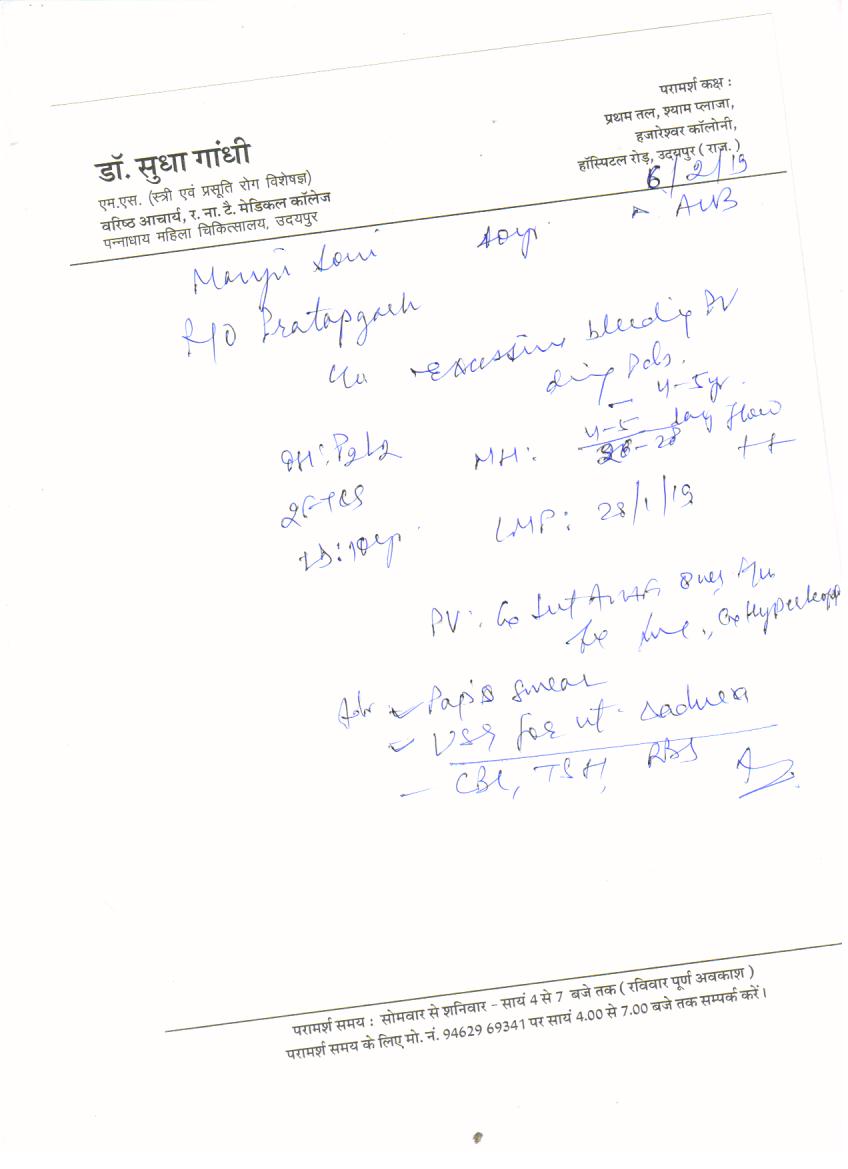 डॉ. सुधा गांधी
एम.एस. (स्त्री एवं प्रसूति रोग विशेषज्ञ)
वरिष्ठ आचार्य, र. ना. टै. मेडिकल कॉलेज
पन्नाधाय महिला चिकित्सालय, उदयपुर
परामर्श कक्ष :
प्रथम तल, श्याम प्लाजा,
हजारेश्वर कॉलोनी,
हॉस्पिटल रोड़, उदयपुर ( राज. )
6/2/19
AUB
Soni 40yr
R/O Pratapgarh
excessive bleeding PV
4-5yr.
OH: P2L2
MH: 4-5 day flow
26-28 ++
LMP: 28/1/19
PV:
Cx Hypertrop
Adv Pap's smear
USG for ut.
- CBC, TSH, RBS
परामर्श समय : सोमवार से शनिवार - सायं 4 से 7 बजे तक ( रविवार पूर्ण अवकाश )
परामर्श समय के लिए मो. नं. 94629 69341 पर सायं 4.00 से 7.00 बजे तक सम्पर्क करें।